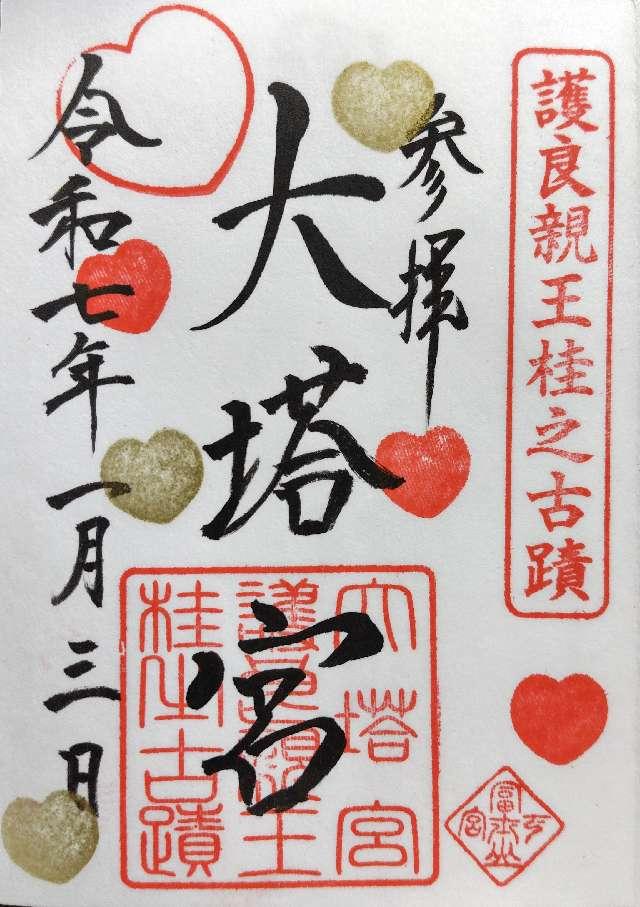 護良親王桂之古蹟
参拝
大塔宮
令和七年一月三日
大塔宮
護良親王
桂之古蹟